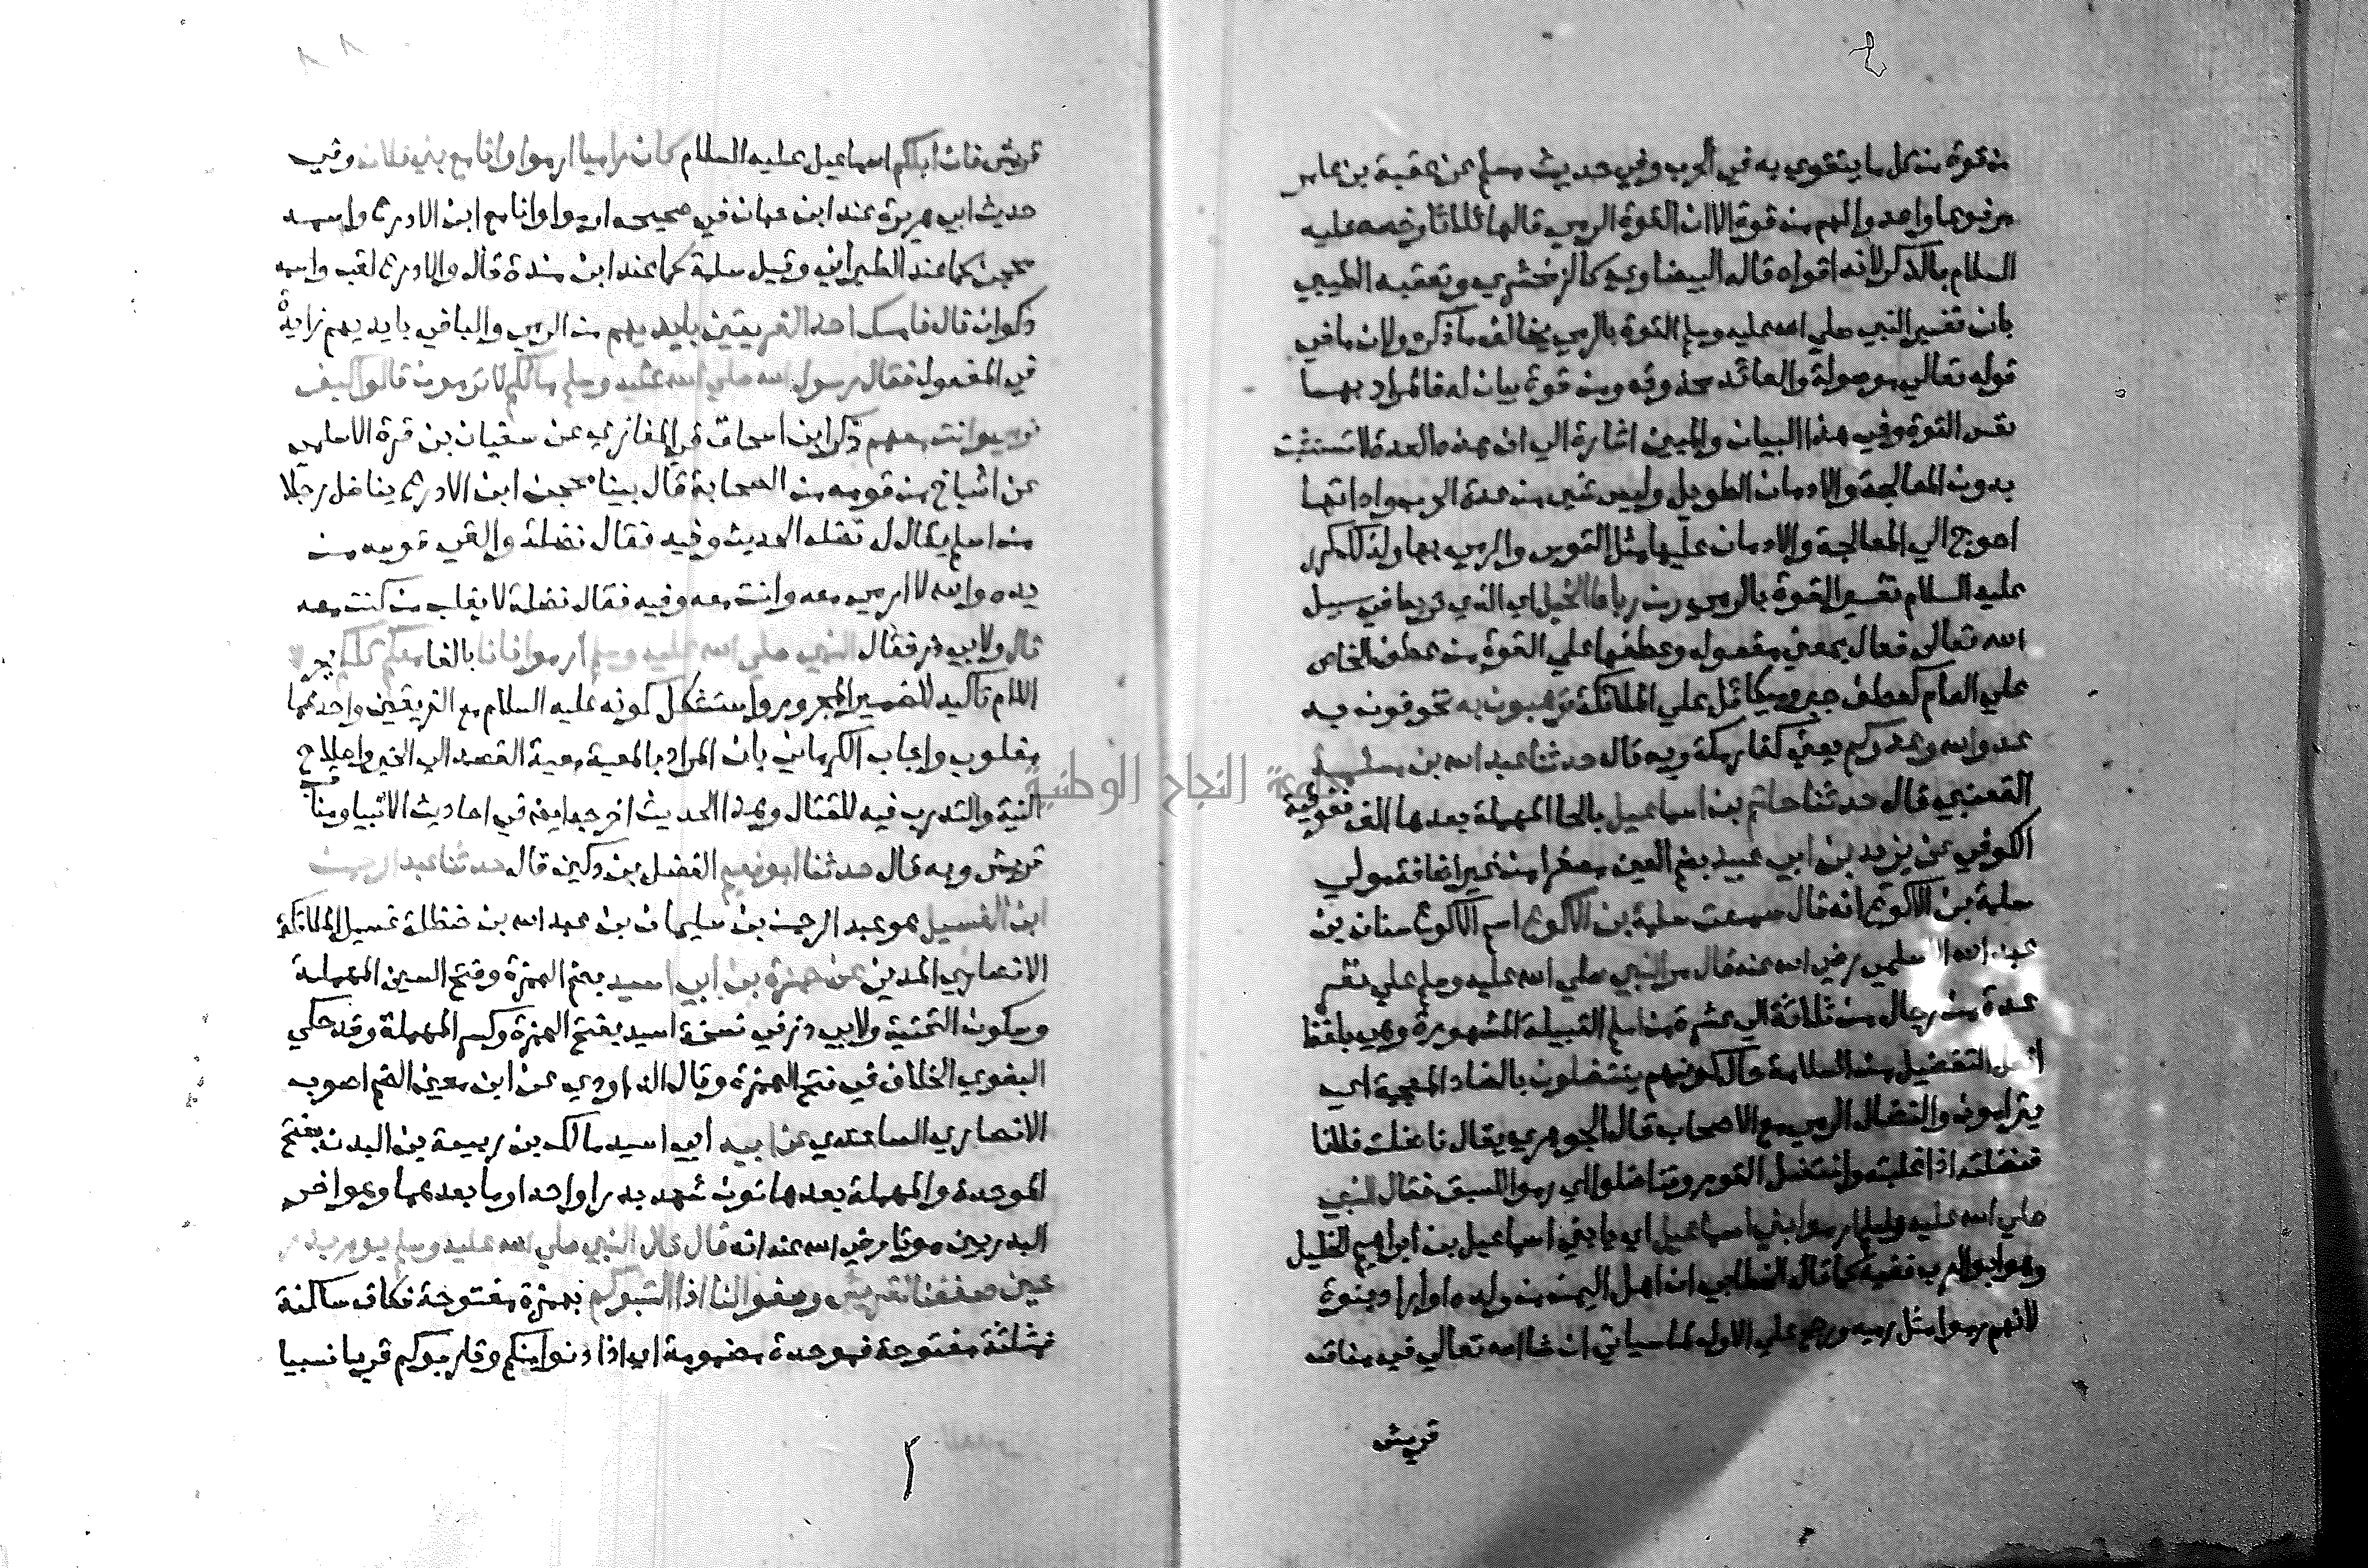 من قوة من كل ما يتقوي به في الحرب وفي حديث مسلم عن عقبة بن عامر
مرفوعا واعدوا لهم من قوة الا ان القوة الرمي قالها ثلاثا وخصه عليه
السلام بالذكر لانه اقواه قاله البيضاوي كالزمخشري وتعقبه الطيبي
بان تفسير النبي صلي الله عليه وسلم القوة بالرمي يخالف ما ذكره ولان ما في
قوله تعالي موصولة والعائد محذوفه ومن قوة بيان له فالمراد بها
نفس القوة وفي هذا البيان والمبين اشارة الي ان هذه العدة لا تستتب
بدون المعالجة والادمان الطويل وليس شي من عدة الحرب واداتها
احوج الي المعالجة والادمان عليها مثل القوس والرمي بها ولذلك كرر
عليه السلام تفسير القوة بالرمي ومن رباط الخيل اي التي تربط في سبيل
الله تعالي فعال بمعني مفعول وعطفها علي القوة من عطف الخاص
علي العام كعطف جبر وميكائل علي الملائكة ترهبون به تخوفون به
عدو الله وعدوكم يعني كفار مكة وبه قال حدثنا عبد الله بن مسلمة
القعنبي قال حدثنا حاتم بن اسماعيل بالحا المهملة بعدها الف ففوقية
الكوفي عن يزيد بن ابي عبيد بضم العين مصغرا من غير اضافة مولي
سلمة بن الاكوع انه قال سمعت سلمة بن الاكوع اسم الاكوع سنان بن
عبد الله الاسلمي رضي الله عنه قال مر النبي صلي الله عليه وسلم علي نفر
عدة من رجال من ثلاثة الي عشرة من اسلم القبيلة المشهورة وهي بلفظ
افعل التفضيل من السلامة حال كونهم ينتضلون بالضاد المعجمة اي
يترامون والنضال الرمي مع الاصحاب قال الجوهري يقال ناضلت فلانا
فنضلته اذا غلبته وانتضل القوم وتناضلوا اي رموا للسبق فقال النبي
صلي الله عليه وسلم ارموا بني اسماعيل اي يا بني اسماعيل بن ابراهيم الخليل
وهو ابو العرب ففيه كما قال الخطابي ان اهل اليمن من ولده او اراد بنوة
لانهم رموا مثل رميه ورجح علي الاول لما سياتي ان شا الله تعالي في مناقب
قريش
قريش فان اباكم اسماعيل عليه السلام كان راميا ارموا وانا مع بني فلان وفي
حديث ابي هريرة عند ابن حبان في صحيحه ارموا وانا مع ابن الادرع واسمه
محجن كما عند الطبراني وقيل سلمة كما عند ابن مندة قال والادرع لقب واسمه
ذكوان قال فامسك احد الفريقين بايديهم من الرمي والبا في بايديهم زايدة
في المفعول فقال رسول الله صلي الله عليه وسلم مالكم لا ترمون قالوا كيف
نرمي وانت معهم ذكر ابن اسحاق في المغازي عن سفيان بن فروة الاسلمي
عن اشياخ من قومه من الصحابة قال بينا محجن ابن الادرع يناضل رجلا
من اسلم يقال له نضلة الحديث وفيه فقال نضلة والقي قوسه من
يده والله لا ارمي معه وانت معه وفيه فقال نضلة لا يغلب من كنت معه
قال ولابي ذر فقال النبي صلي الله عليه وسلم ارموا فانا بالفا معكم كلكم بجر
اللام تاكيد للضمير المجرور واستشكل كونه عليه السلام مع الفريقين واحدهما
مغلوب واجاب الكرماني بان المراد بالمعية معية القصد الي الخير واصلاح
النية والتدرب فيه للقتال وهذا الحديث اخرجه ايضا في احاديث الانبيا ومناقب
قريش وبه قال حدثنا ابو نعيم الفضل بن دكين قال حدثنا عبد الرحمن
ابن الغسيل هو عبد الرحمن بن سليمان بن عبد الله بن حنظلة غسيل الملائكة
الانصاري المدني عن حمزة بن ابي اسيد بضم الهمزة وفتح السين المهملة
وسكون التحتية ولابي ذر في نسخة اسيد بفتح الهمزة وكسر المهملة وقد حكي
البغوي الخلاف في فتح الهمزة وقال الداوردي عن ابن معين الضم اصوب
الانصاري الساعدي عن ابيه ابي اسيد مالك بن ربيعة بن البدن بفتح
الموحدة والمهملة بعدها نون شهد بدرا واحدا وما بعدهما وهو اخر
البدريين موتا رضي الله عنه انه قال قال النبي صلي الله عليه وسلم يوم بدر
حين صففنا لقريش وصفوا لنا اذا اكثبوكم بهمزة مفتوحة فكاف ساكنة
فمثلثة مفتوحة فموحدة مضمومة اي اذا دنوا منكم وقاربوكم قربا نسبيا